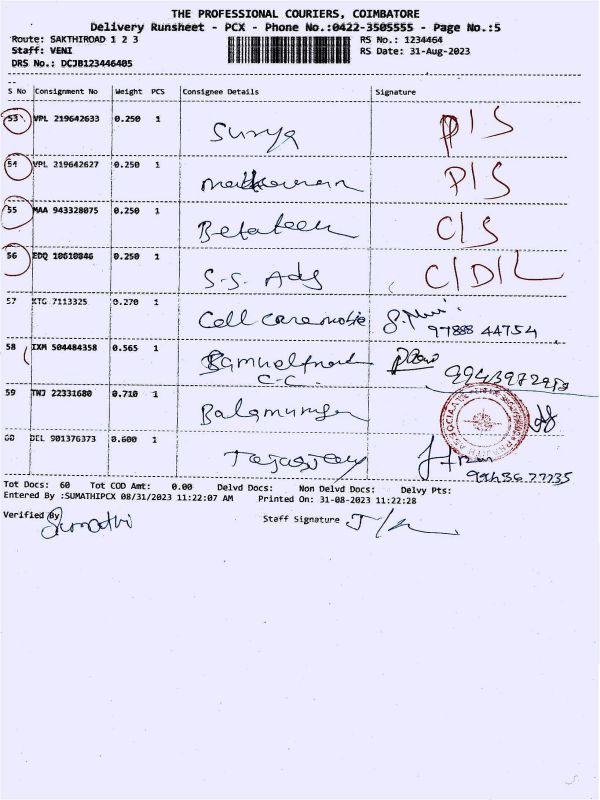 THE PROFESSIONAL COURIERS, COIMBATORE
Delivery Runsheet - PCX - Phone No.:0422-3505555 - Page No.:5
Route: SAKTHIROAD 1 2 3 RS No.: 1234464
Staff: VENI RS Date: 31-Aug-2023
DRS No.: DCJB123446405
S No Consignment No Weight PCS Consignee Details Signature
53 VPL 219642633 0.250 1 Surya P/S
54 VPL 219642627 0.250 1 P/S
55 MAA 943328075 0.250 1 C/S
56 EDQ 10610846 0.250 1 S.S. Ads C/D/L
57 KTG 7113325 0.270 1 Cell care mobile
97888 44754
58 IXM 504484358 0.565 1
C.C.
59 TNJ 22331680 0.710 1 Balamurugan
60 DEL 901376373 0.600 1
Tot Docs: 60 Tot COD Amt: 0.00 Delvd Docs: Non Delvd Docs: Delvy Pts:
Entered By :SUMATHIPCX 08/31/2023 11:22:07 AM Printed On: 31-08-2023 11:22:28
Verified By Sumathi Staff Signature